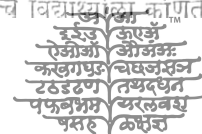 च विद्यार्थ्याला कोणत
अ आ TM
इईउ ऊएॲ
ऐओऑ औअंअः
कखगघङ चछजझञ
टठडढण तथदधन
पफबभम यरलवश
षसह ळक्षज्ञ